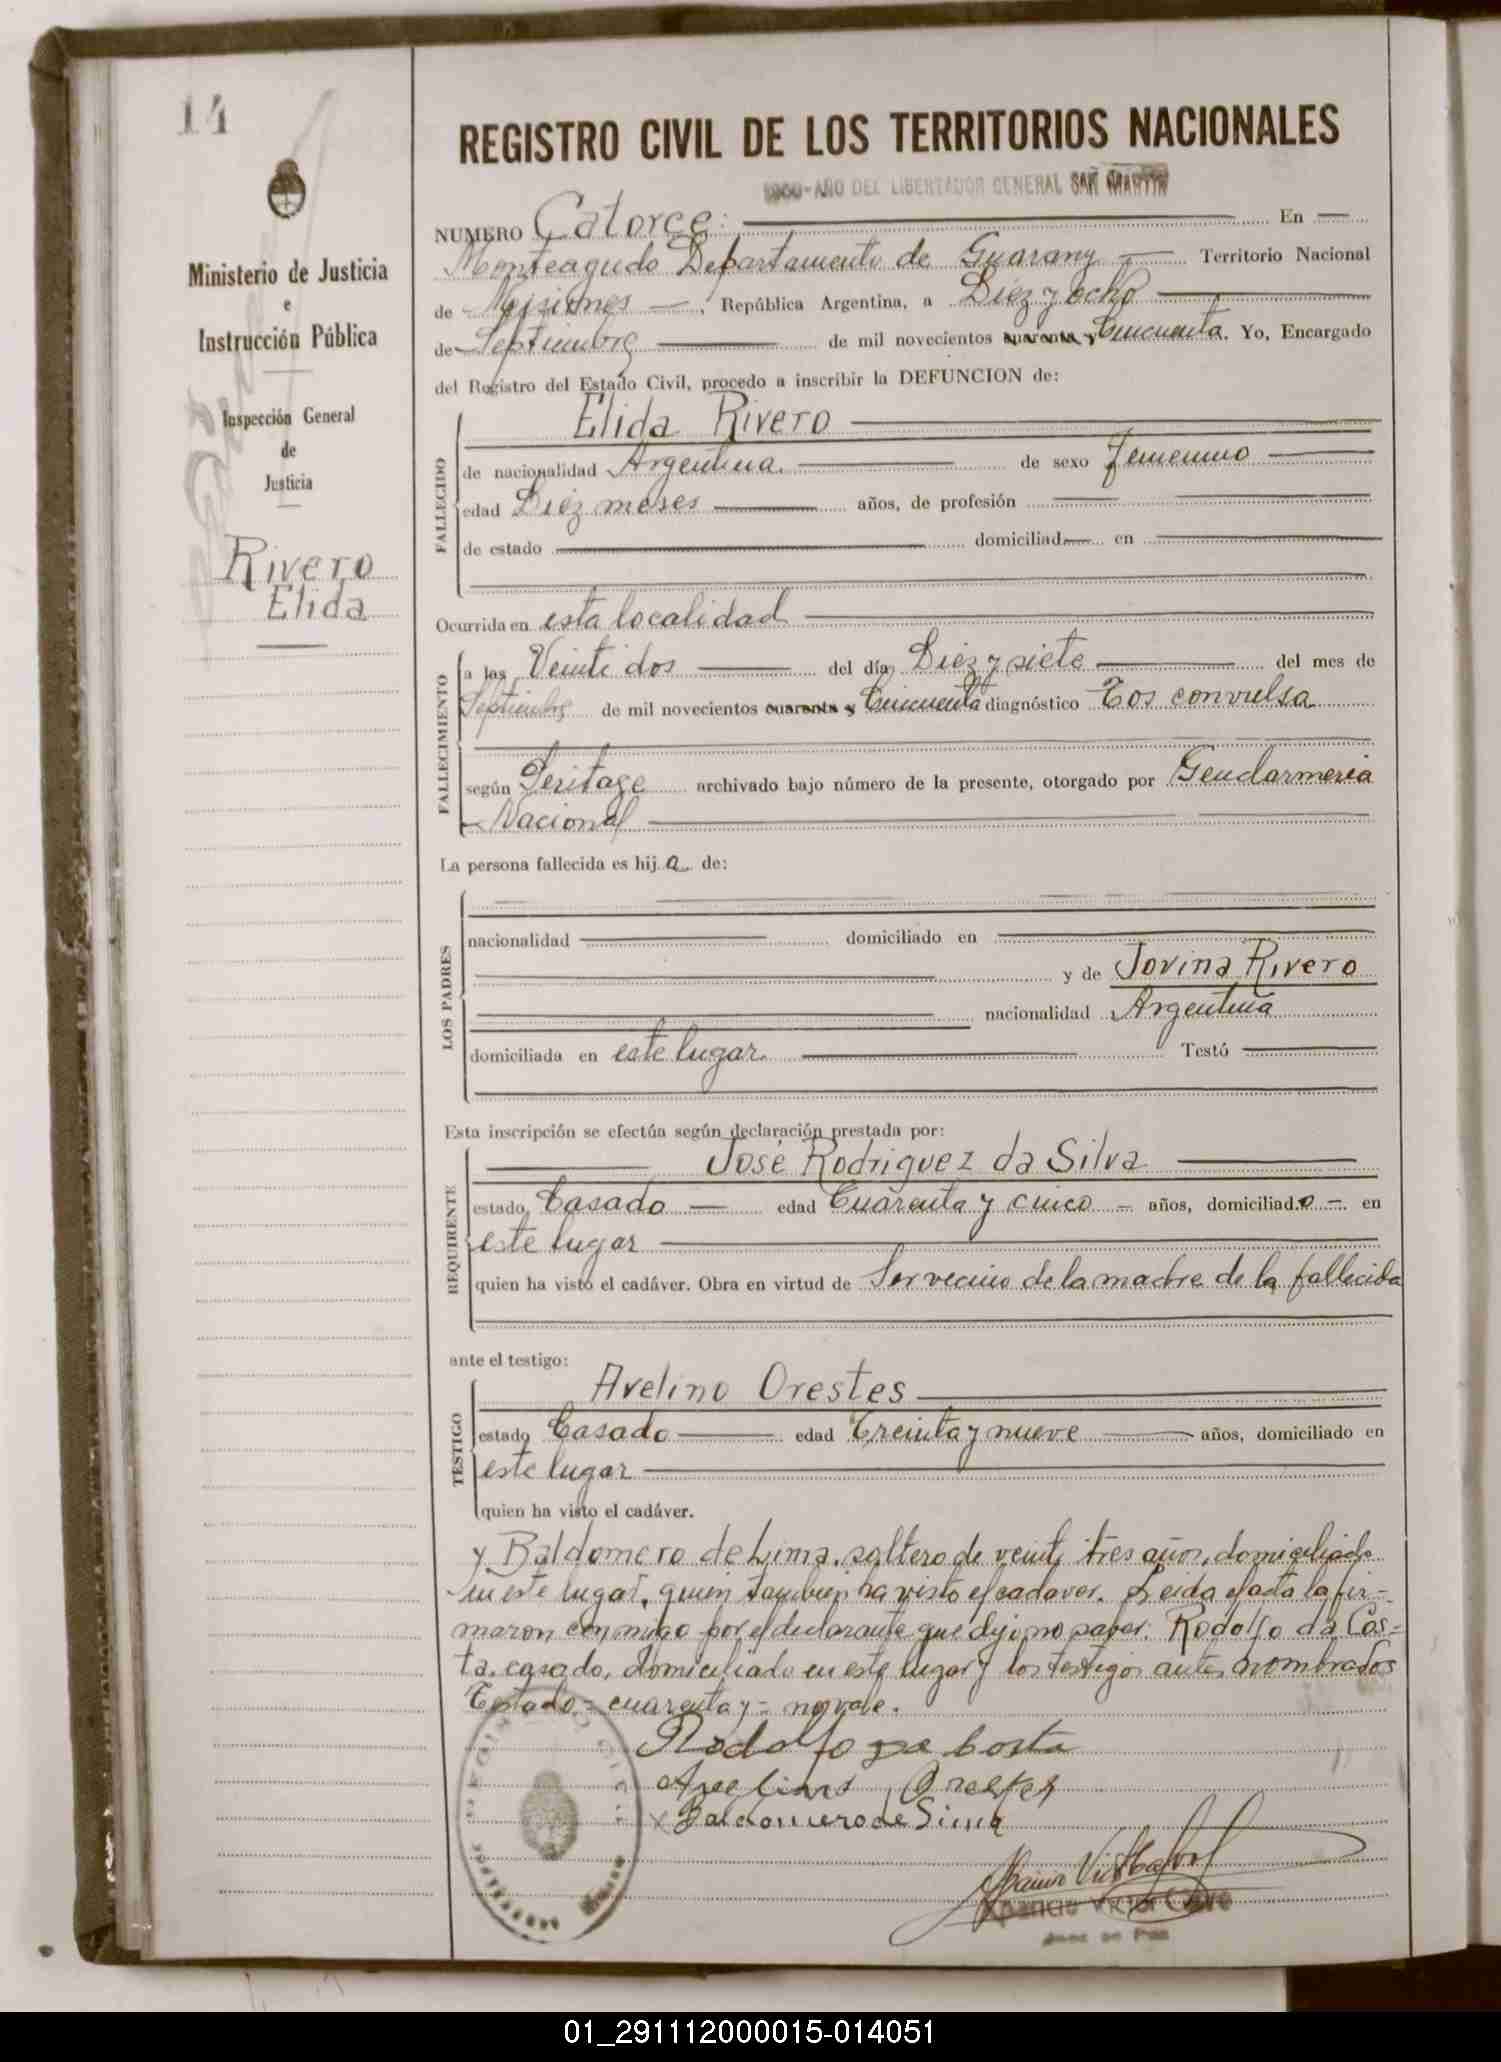 14
Ministerio de Justicia
e
Instrucción Pública
Inspección General
de
Justicia
Rivero
Elida
REGISTRO CIVIL DE LOS TERRITORIOS NACIONALES
1950-AÑO DEL LIBERTADOR GENERAL SAN MARTIN
NUMERO Catorce: En
Monteagudo Departamento de Guarany Territorio Nacional
de Misiones, República Argentina, a Diez y ocho
de Septiembre de mil novecientos cuarenta y Cincuenta. Yo, Encargado
del Registro del Estado Civil, procedo a inscribir la DEFUNCION de:
FALLECIDO
Elida Rivero
de nacionalidad Argentina. de sexo femenino
edad Diez meses años, de profesión
de estado domiciliad en
Ocurrida en esta localidad
FALLECIMIENTO
a las Veinti dos del día Diez y siete del mes de
Septiembre de mil novecientos cuarenta y Cincuenta diagnóstico Tos convulsa
según Peritage archivado bajo número de la presente, otorgado por Gendarmeria
Nacional
La persona fallecida es hij a de:
LOS PADRES
nacionalidad domiciliado en
y de Jovina Rivero
nacionalidad Argentina
domiciliada en este lugar. Testó
Esta inscripción se efectúa según declaración prestada por:
REQUIRENTE
José Rodriguez da Silva
estado Casado edad Cuarenta y cinco años, domiciliado en
este lugar
quien ha visto el cadáver. Obra en virtud de Ser vecino de la madre de la fallecida
ante el testigo:
TESTIGO
Avelino Orestes
estado Casado edad Treinta y nueve años, domiciliado en
este lugar
quien ha visto el cadáver.
y Baldomero de Lima, soltero de veinti tres años, domiciliado
en este lugar, quien tambien ha visto el cadaver. Leida el acta la fir-
maron conmigo por el declarante que dijo no saber. Rodolfo da Cos-
ta, casado, domiciliado en este lugar y los testigos antes nombrados
Testado = cuarenta y = no vale.
Rodolfo da Costa
Avelino Orestes
x Baldomero de Lima
Aparicio Victor
Juez de Paz
01_291112000015-014051